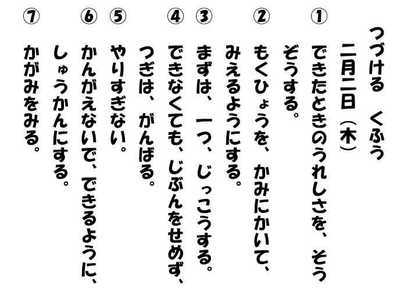 つづける くふう
二月二日（木）
① できたときのうれしさを、そう
ぞうする。
② もくひょうを、かみにかいて、
みえるようにする。
③ まずは、一つ、じっこうする。
④ できなくても、じぶんをせめず、
つぎは、がんばる。
⑤ やりすぎない。
⑥ かんがえないで、できるように、
しゅうかんにする。
⑦ かがみをみる。